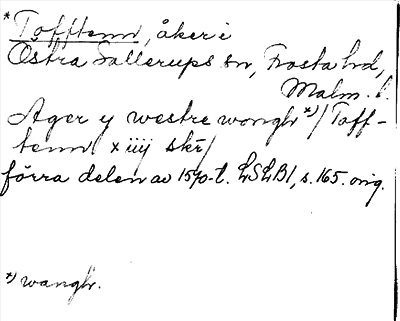 * Tofftenn, åker i
Östra Sallerups sn, Frosta hd,
Malm. l.
Ager y westre wongh *)/ Toff-
tenn x iiij skr/
förra delen av 1570-t. LSLB1, s. 165. orig.
*) wangh.